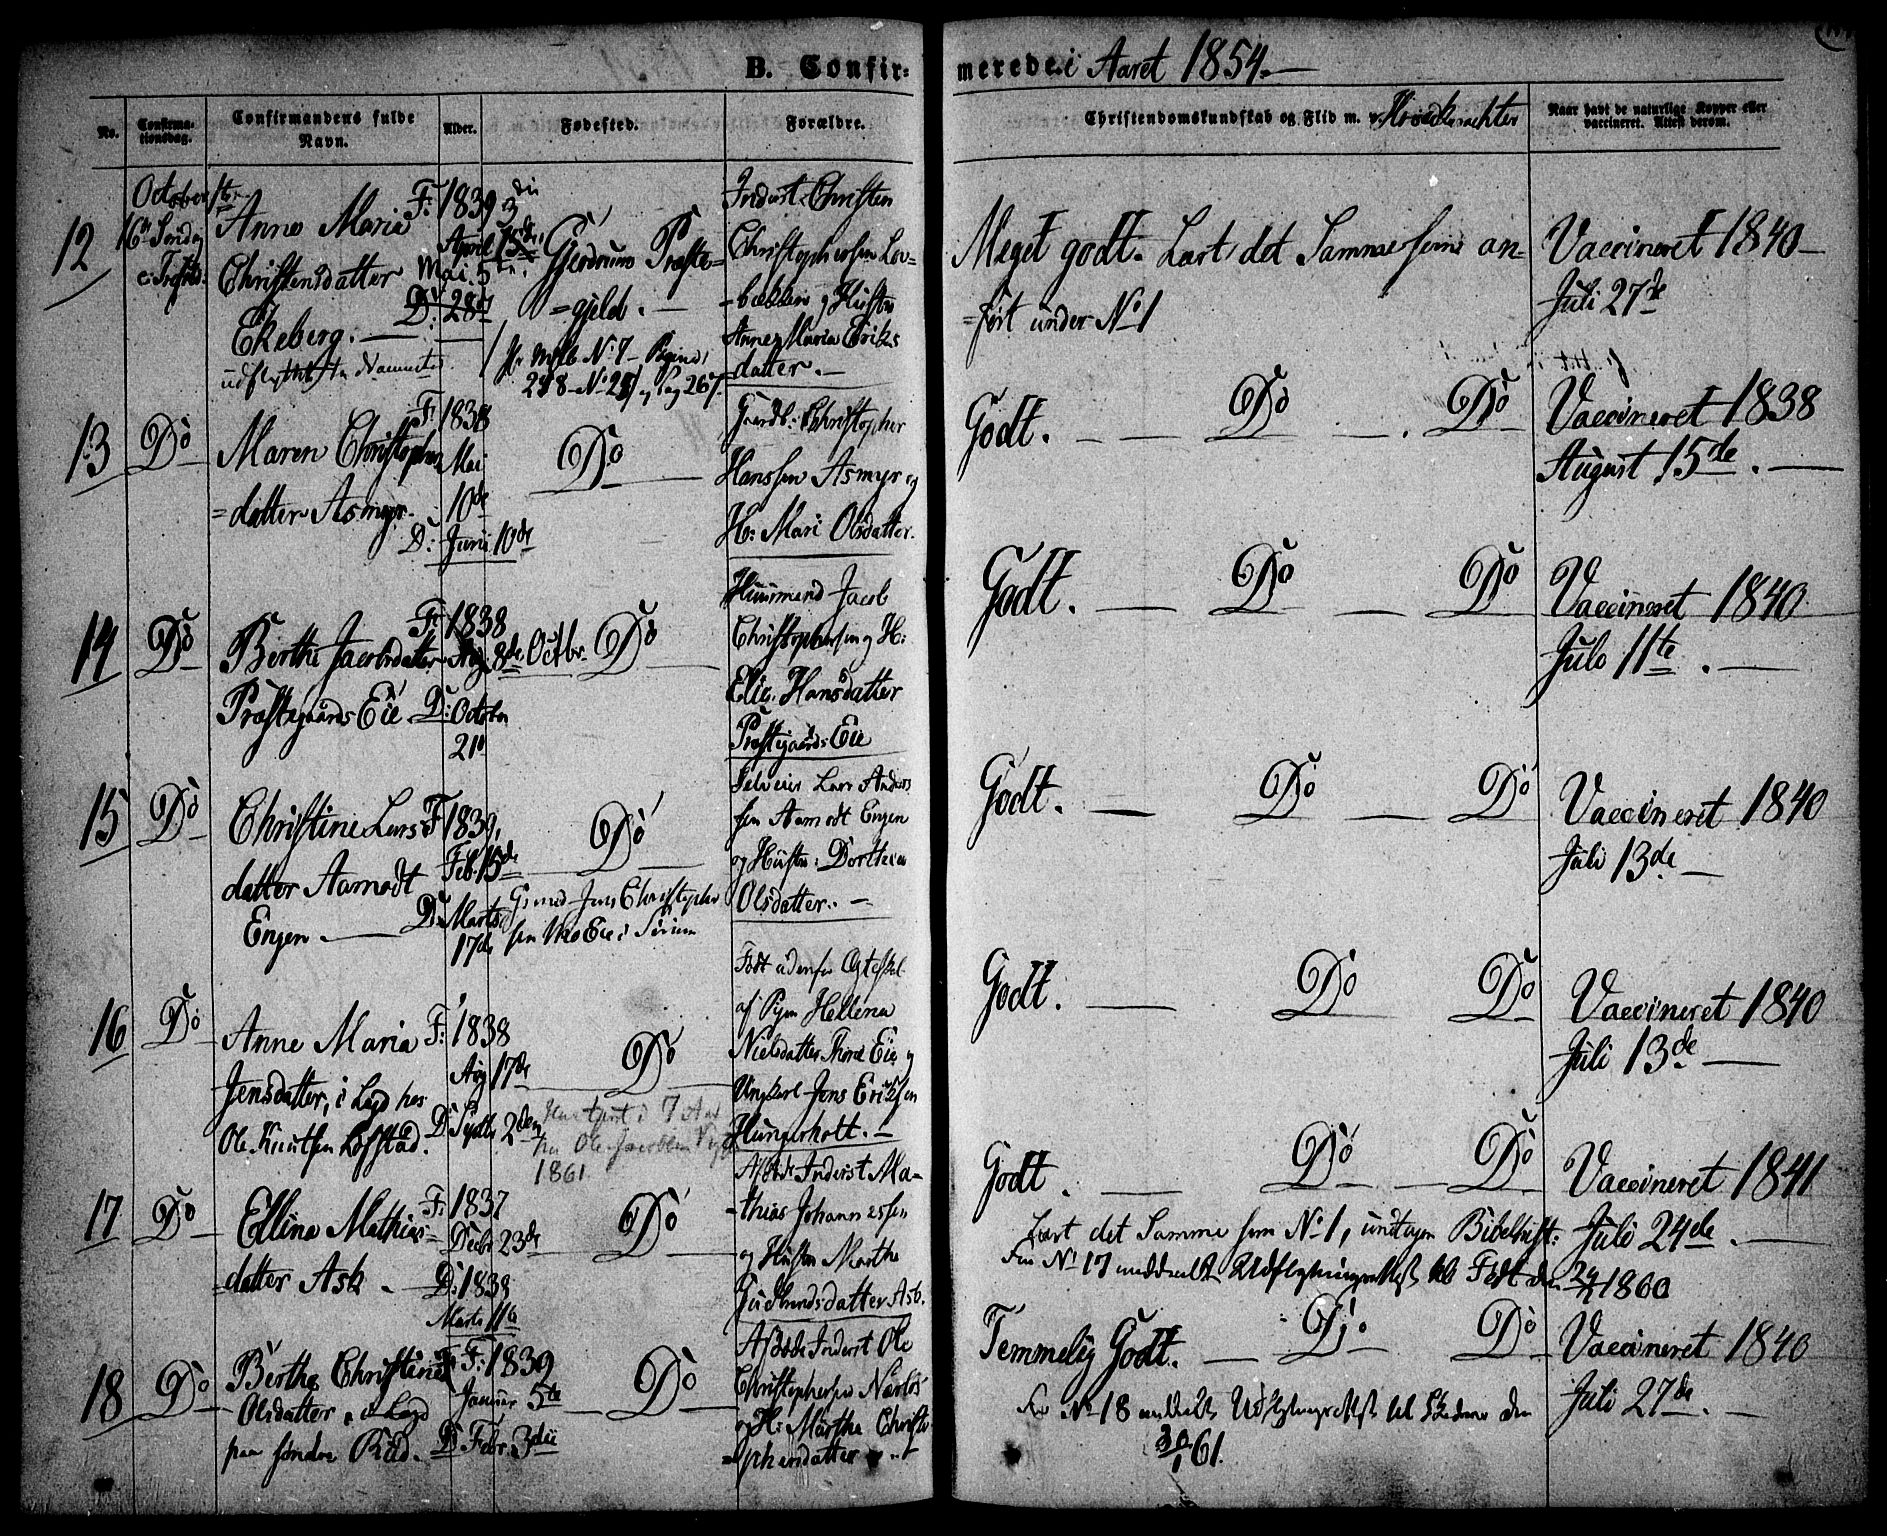 B. Confir=
merede i Aaret 1854.
No.
Confirma-
tionsdag.
Confirmandens fulde
Navn.
Alder.
Fødested.
Forældre.
Christendomskundskab og Flid m. v.
Naar havt de naturlige Kopper eller
vaccineret. Attest derom.
12
October
Anne Maria
Christensdatter
Ekeberg.
F: 1839
April
Mai 5
D: 28de
Gjerdrums Præste=
=gjeld.
Inderst Christen
Christophersen Lov=
=bækken og Hustru
Anne Maria Eriks
datter.
Meget godt. Lært det Samme som an=
=ført under No 1
Vaccineret 1840
Juli 27de
13
Do
Maren Christophers
=datter Asmyr.
F: 1838
Mai
10de
D: Juni 10de
Do
Gaardb: Christopher
Hanssen Asmyr og
H: Mari Olsdatter.
Godt. Do Do
Vaccineret 1838
August 15de.
14
Do
Berthe Jacobsdatter
Præstegaards Eie
F: 1838
8de Octbr.
D: October
21
Do
Huusmand Jacob
Christophersen og H:
Elie Hansdatter
Præstgaards Eie
Godt. Do Do
Vaccineret 1840
Juli 11te.
15
Do
Christine Lars
datter Aamodt
Engen.
F 1839,
Feb. 15de
D: Marts
17de
Do
Selveier Lars Anders
sen Aamodt Engen
og Hustru: Dorthea
Olsdatter.
Godt. Do Do
Vaccineret 1840
Juli 13de
16
Do
Anne Maria
Jensdatter, i Lægd hos
Ole Knutsen Løfstad.
F: 1838
Aug 17de
D: Septbr 2den
Do
1861
Født udenfor Ægteskab
af Pigen Hellena
Nielsdatter Eie og
Ungkarl Jens Eriksen
Hungerholt.
Godt. Do Do
Vaccineret 1840
Juli 13de
17
Do
Ellina Mathias=
=datter Ask.
F: 1837
Decbr 23de
D: 1838
Marts 11te
Do
Afdøde Inderst Ma=
=thias Johannessen
og Hustru Marthe
Gudbrandsdatter Ask.
Godt. Do Do
Lært det Samme som No 1, undtagen Bibelhist:
For No 17 meddeelt Udflytningsattest til Fedt den
1860
Vaccineret 1841
Juli 24de.
18
Do
Berthe Christine
Olsdatter, i Lægd
paa søndre Ruud.
F: 1839
Januar 5te
D. Febr. 3die
Do
Afdøde Inderst Ole
Christophersen
og H: Marthe Christo
=phersdatter
Temmelig Godt. Do Do
For No 18 meddeelt Udflytningsattest til Skedsmo den
30/1 61.
Vaccineret 1840
Juli 27de.